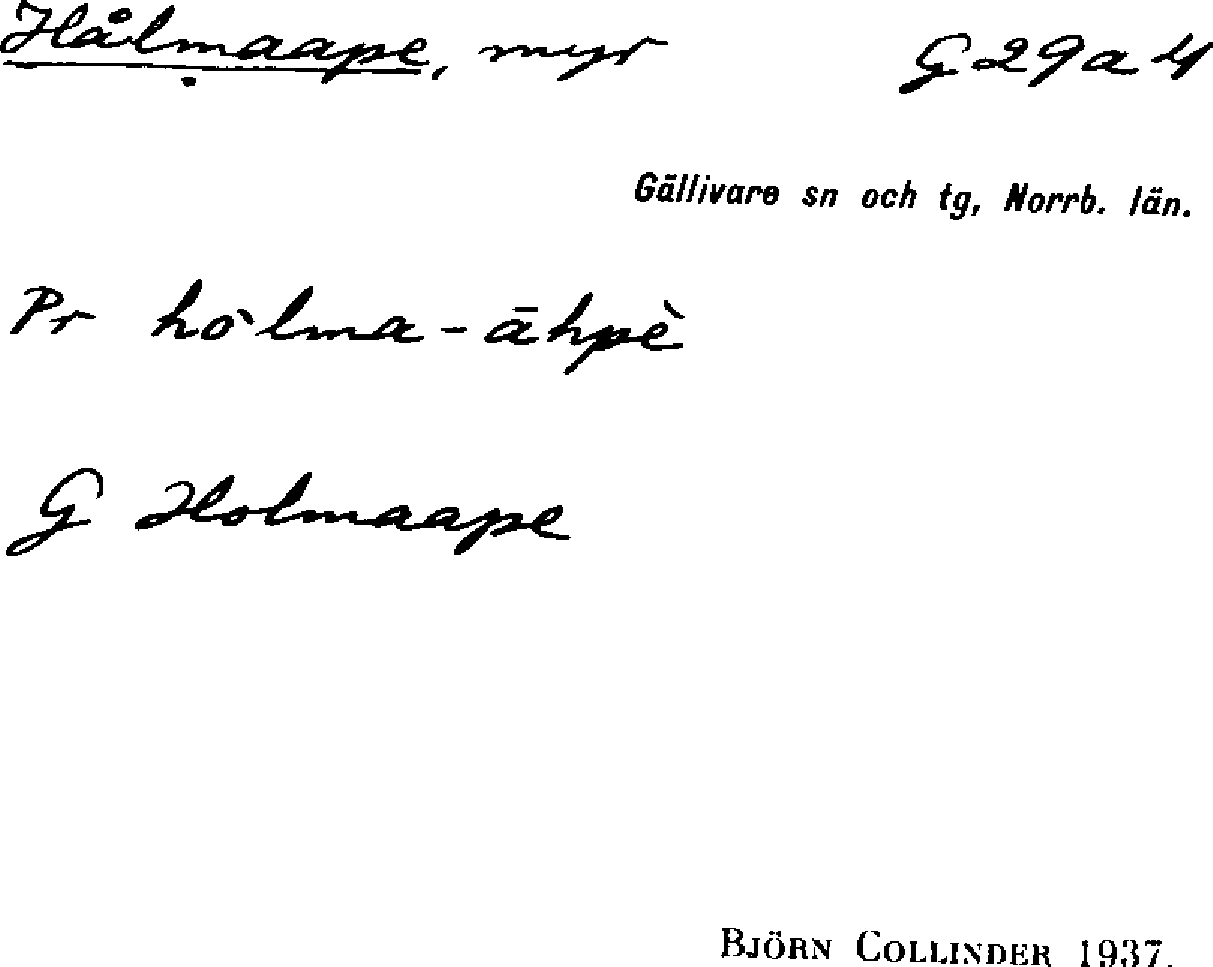 Hålmaape, myr G 29 a 4
Gällivare sn och tg, Norrb. län.
Pr hòlma-āhpè
G Holmaape
BJÖRN COLLINDER 1937.